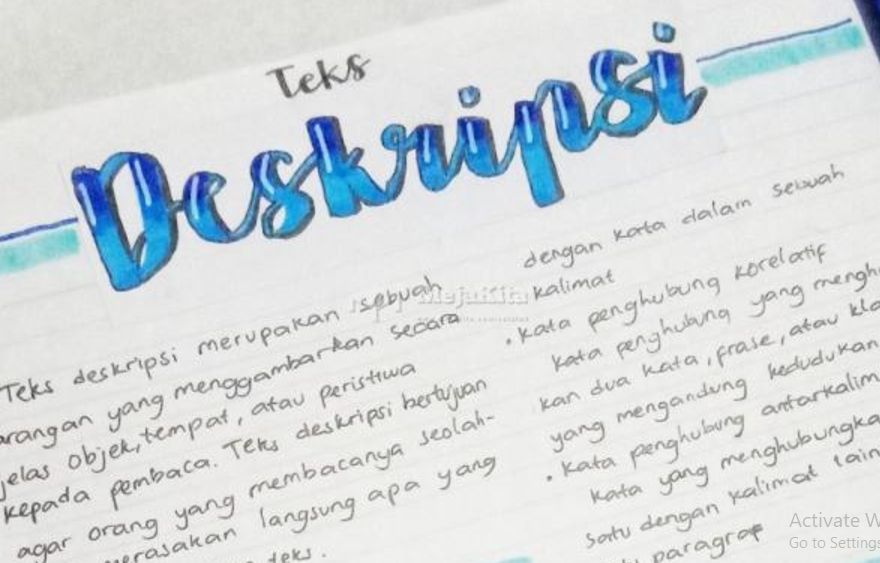 Teks
Deskripsi
Teks deskripsi merupakan sebuah
arangan yang menggambarkan secara
jelas objek, tempat, atau peristiwa
kepada pembaca. Teks deskripsi bertujuan
agar orang yang membacanya seolah-
merasakan langsung apa yang
teks.
dengan kata dalam sebuah
kalimat
• kata penghubung korelatif
kata penghubung yang mengh
kan dua kata, frase, atau kla
yang mengandung kedudukan
• kata penghubung antarkalim
kata yang menghubungka
satu dengan kalimat lain
paragraf
MejaKita
Activate W
Go to Settings